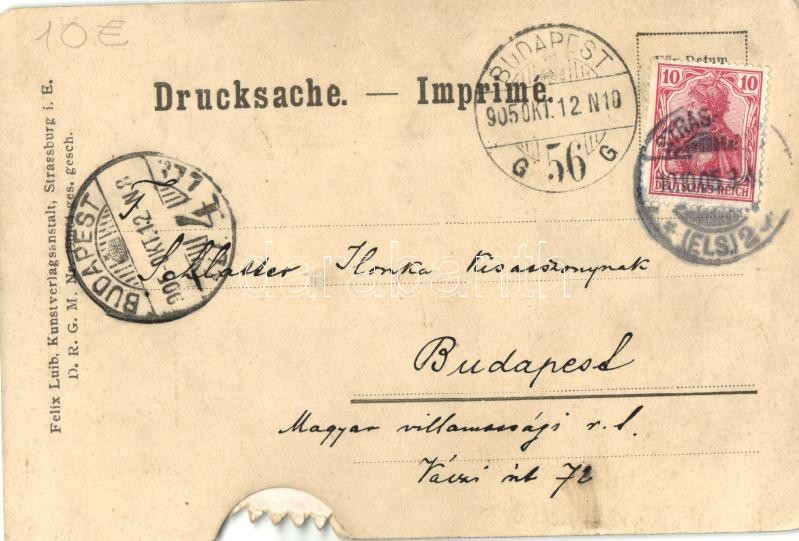 10€
Für Datum
Drucksache. — Imprimé.
BUDAPEST
905 OKT. 12 N10
G 56 G
10
DEUTSCHES REICH
STRAS
(ELS) 2
BUDAPEST
905 OKT. 12
darabanth
T. Schlatter Ilonka Kisasszonynak
Budapest
Magyar villamossági r. t.
Váczi út 72
Felix Luib, Kunstverlagsanstalt, Strassburg i. E.
D. R. G. M. ges. gesch.